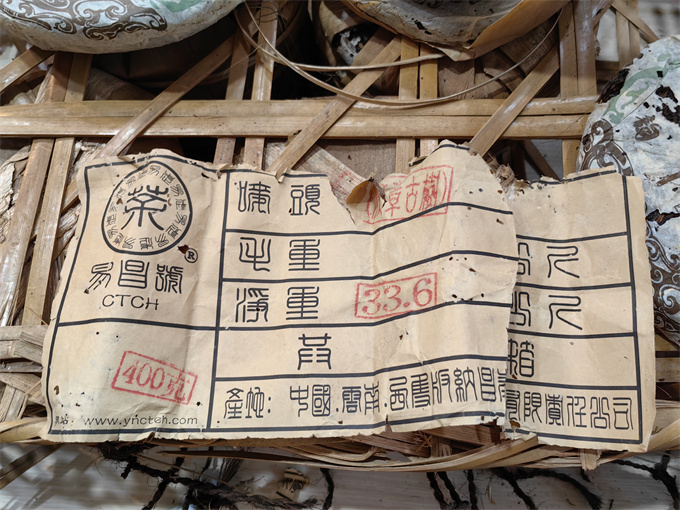 茶
易昌號®
CTCH
400克
www.yncteh.com
嘜頭
草古樹
毛重 公斤
淨重 33.6 公斤
共 箱
產地: 中國.雲南.西雙版納昌 限責任公司